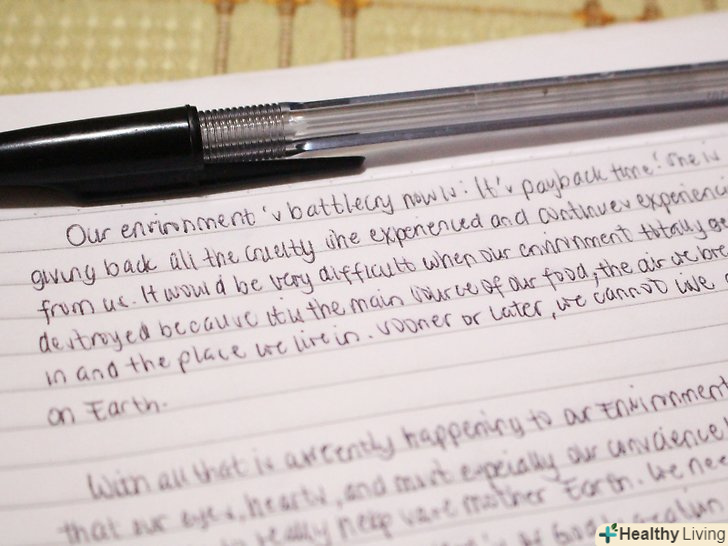 Our environment's battlecry now is: It's payback time! She is
giving back all the cruelty she experienced and continues experienc
from us. It would be very difficult when our environment totally ge
destroyed because it is the main source of our food, the air we bre
in and the place we live in. Sooner or later, we cannot live
on Earth.
With all that is currently happening to our Environment
that our eyes, hearts, and most especially our conscience
really help save mother Earth. We nee
Healthy Living